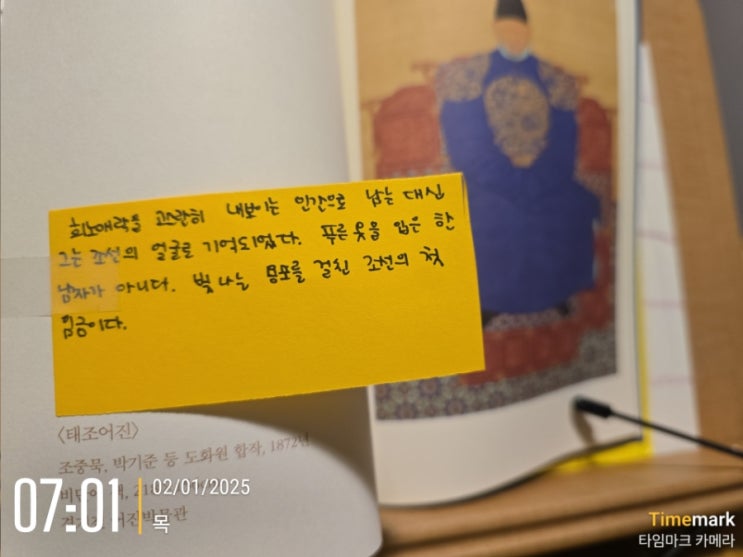 희노애락을 고스란히 내보이는 인간으로 남는 대신
그는 조선의 얼굴로 기억되었다. 푸른 옷을 입은 한
남자가 아니다. 빛나는 용포를 걸친 조선의 첫
임금이다.
〈태조어진〉
조중묵, 박기준 등 도화원 합작, 1872년
어진박물관
07:01
02/01/2025
목
Timemark
타임마크 카메라